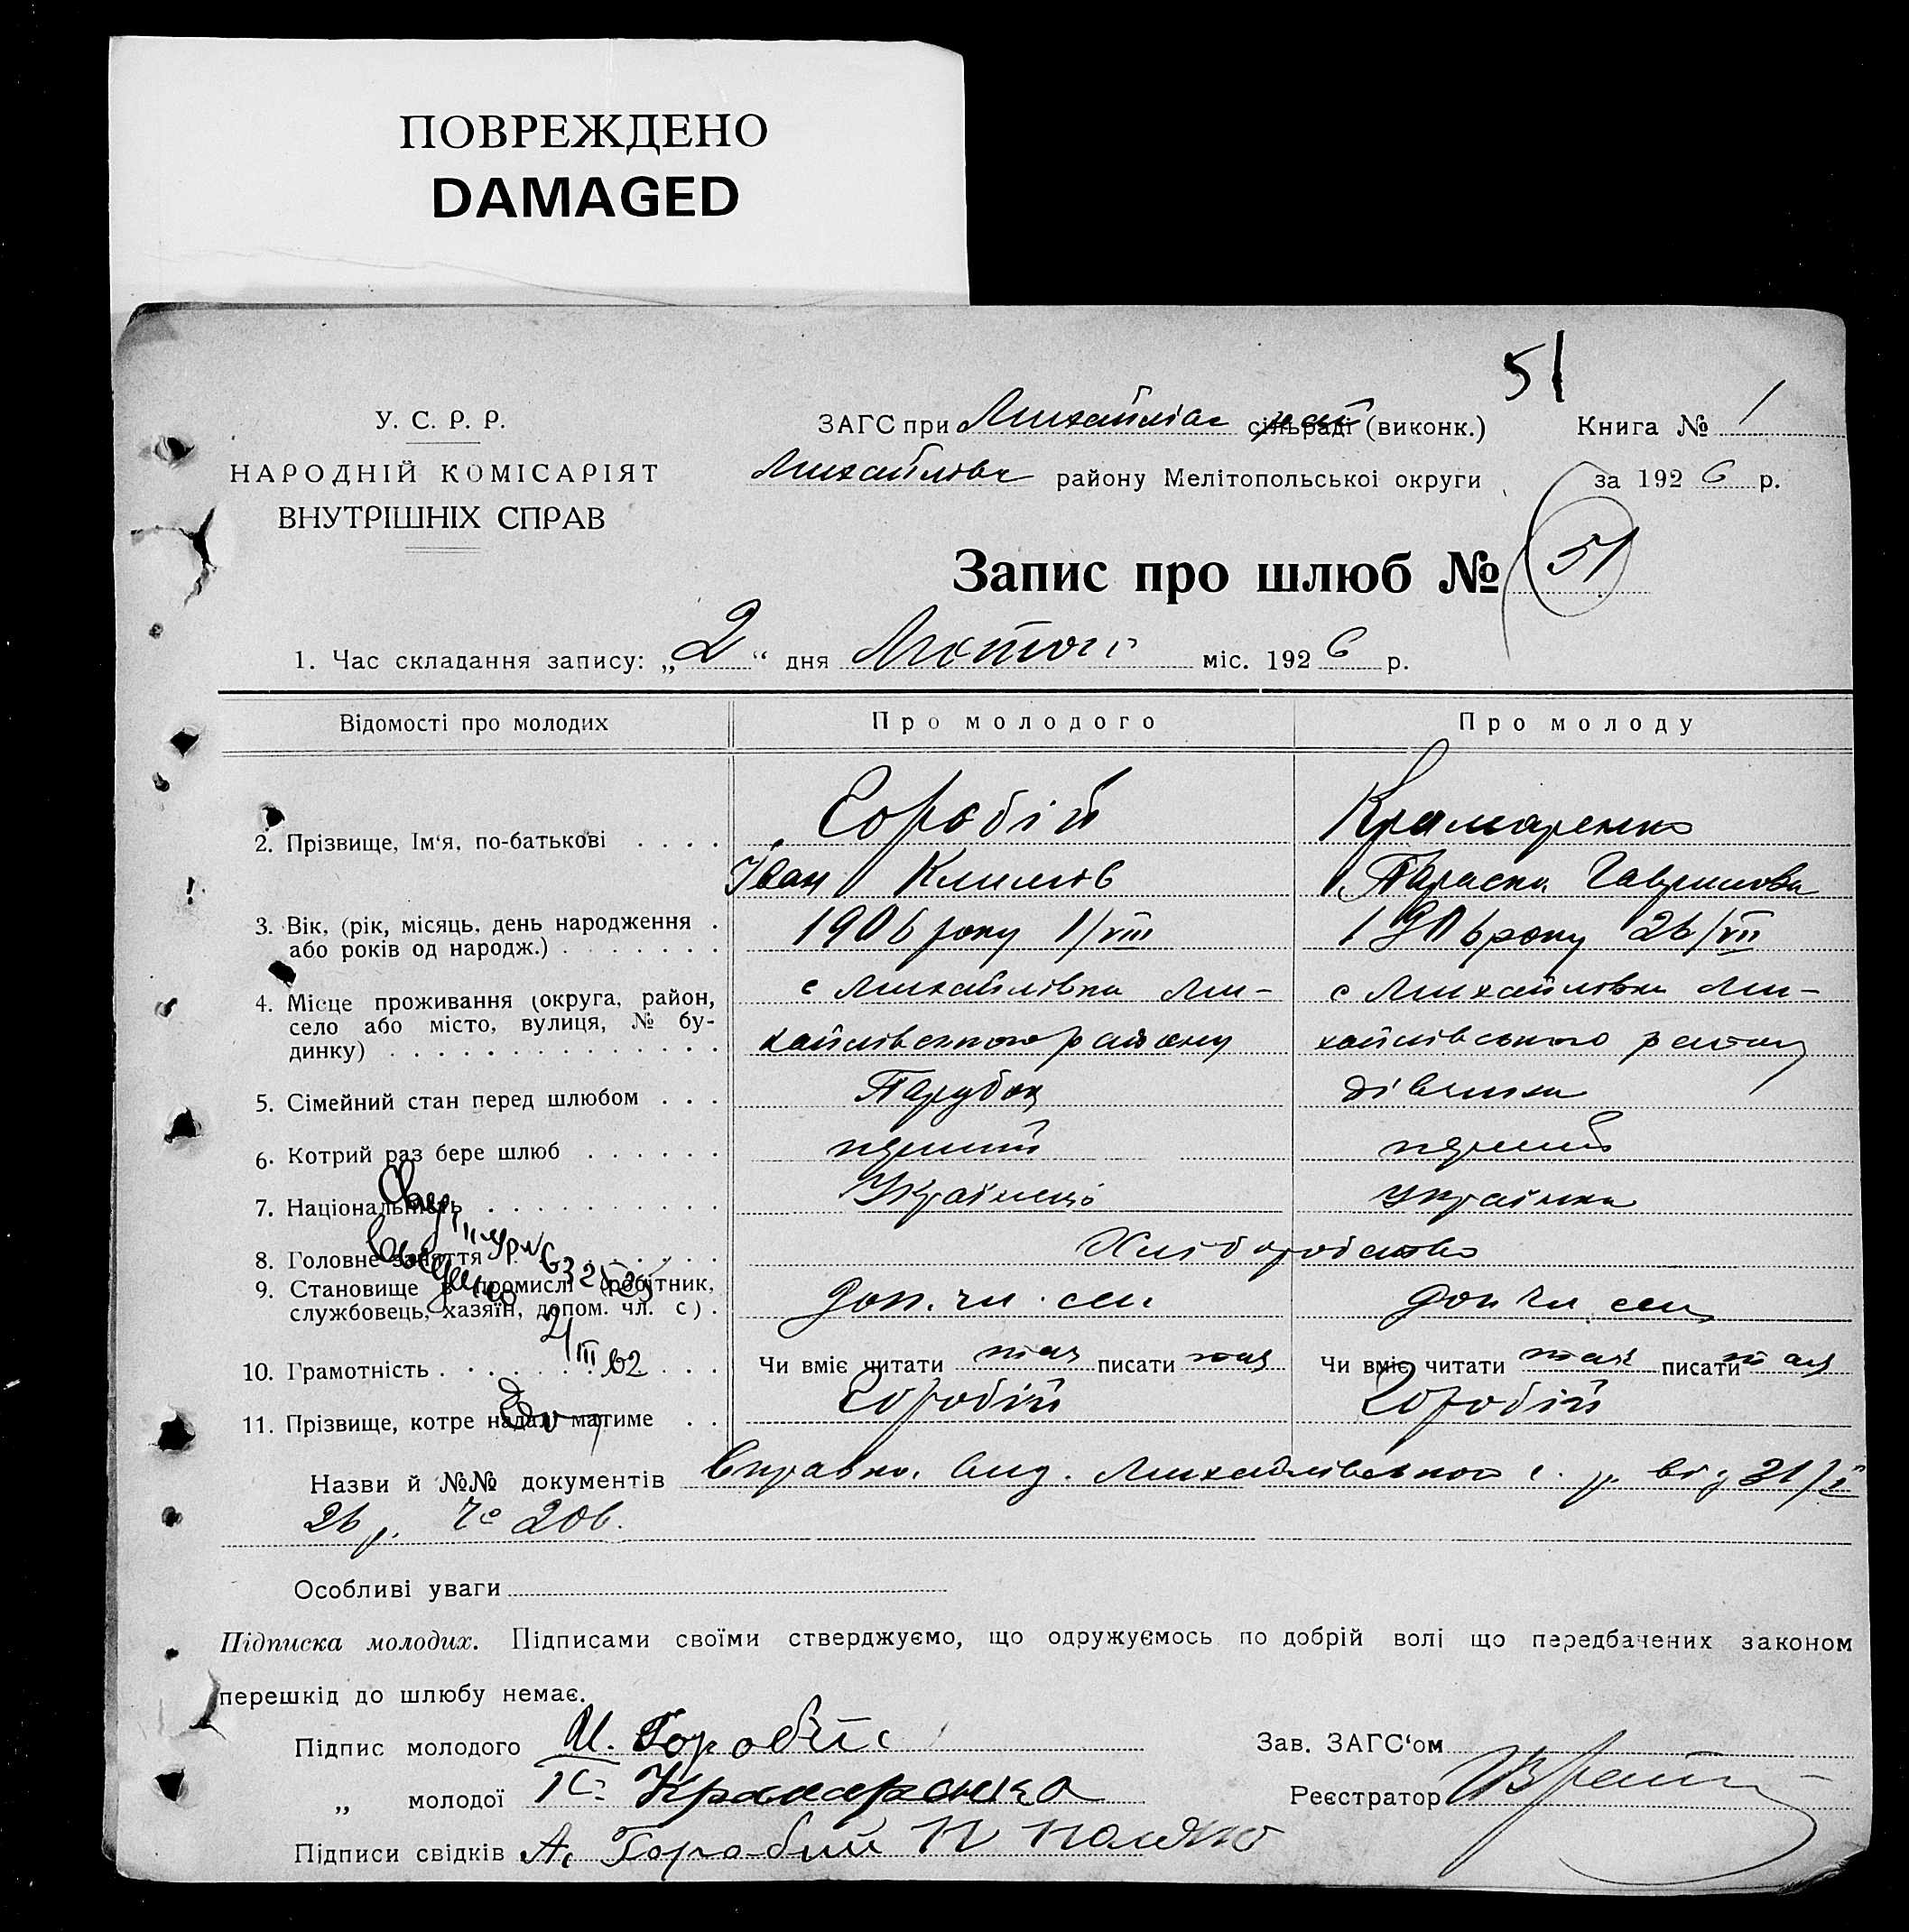 ПОВРЕЖДЕНО
DAMAGED
51
У. С. Р. Р.
НАРОДНІЙ КОМІСАРІЯТ
ВНУТРІШНІХ СПРАВ
ЗАГС при сільраді (виконк.) Книга № 1
району Мелітопольської округи за 1926 р.
Запис про шлюб № 51
1. Час складання запису: „2“ дня Лютого міс. 1926 р.
Відомості про молодих Про молодого Про молоду
2. Прізвище, Ім‘я, по-батькові Горобій Крамаренко
Іван Климів Параска Гаврилова
3. Вік, (рік, місяць, день народження або років од народж.) 1906 року 1/VIII 1906 року 26/VII
4. Місце проживання (округа, район, с Михайлівка Ми- с Михайлівка Ми-
село або місто, вулиця, № бу-
динку) хайлівського району хайлівського району
5. Сімейний стан перед шлюбом Парубок дівчина
6. Котрий раз бере шлюб перший перший
7. Національність Українець українка
8. Головне заняття Хліборобство
9. Становище в промислі (робітник,
службовець, хазяїн, допом. чл. с). доп. чл. сем доп чл сем
21/III 62
10. Грамотність Чи вміє читати так писати так Чи вміє читати так писати так
11. Прізвище, котре надалі матиме Горобій Горобій
Назви й №№ документів Справка вид. Михайлівського с. р. від 31/I
26 р. 206.
Особливі уваги
Підписка молодих. Підписами своїми стверджуємо, що одружуємось по добрій волі що передбачених законом
перешкід до шлюбу немає.
Підпис молодого И. Горобій Зав. ЗАГС‘ом
„ молодої Крамаренко Реєстратор
Підписи свідків А. Горобий